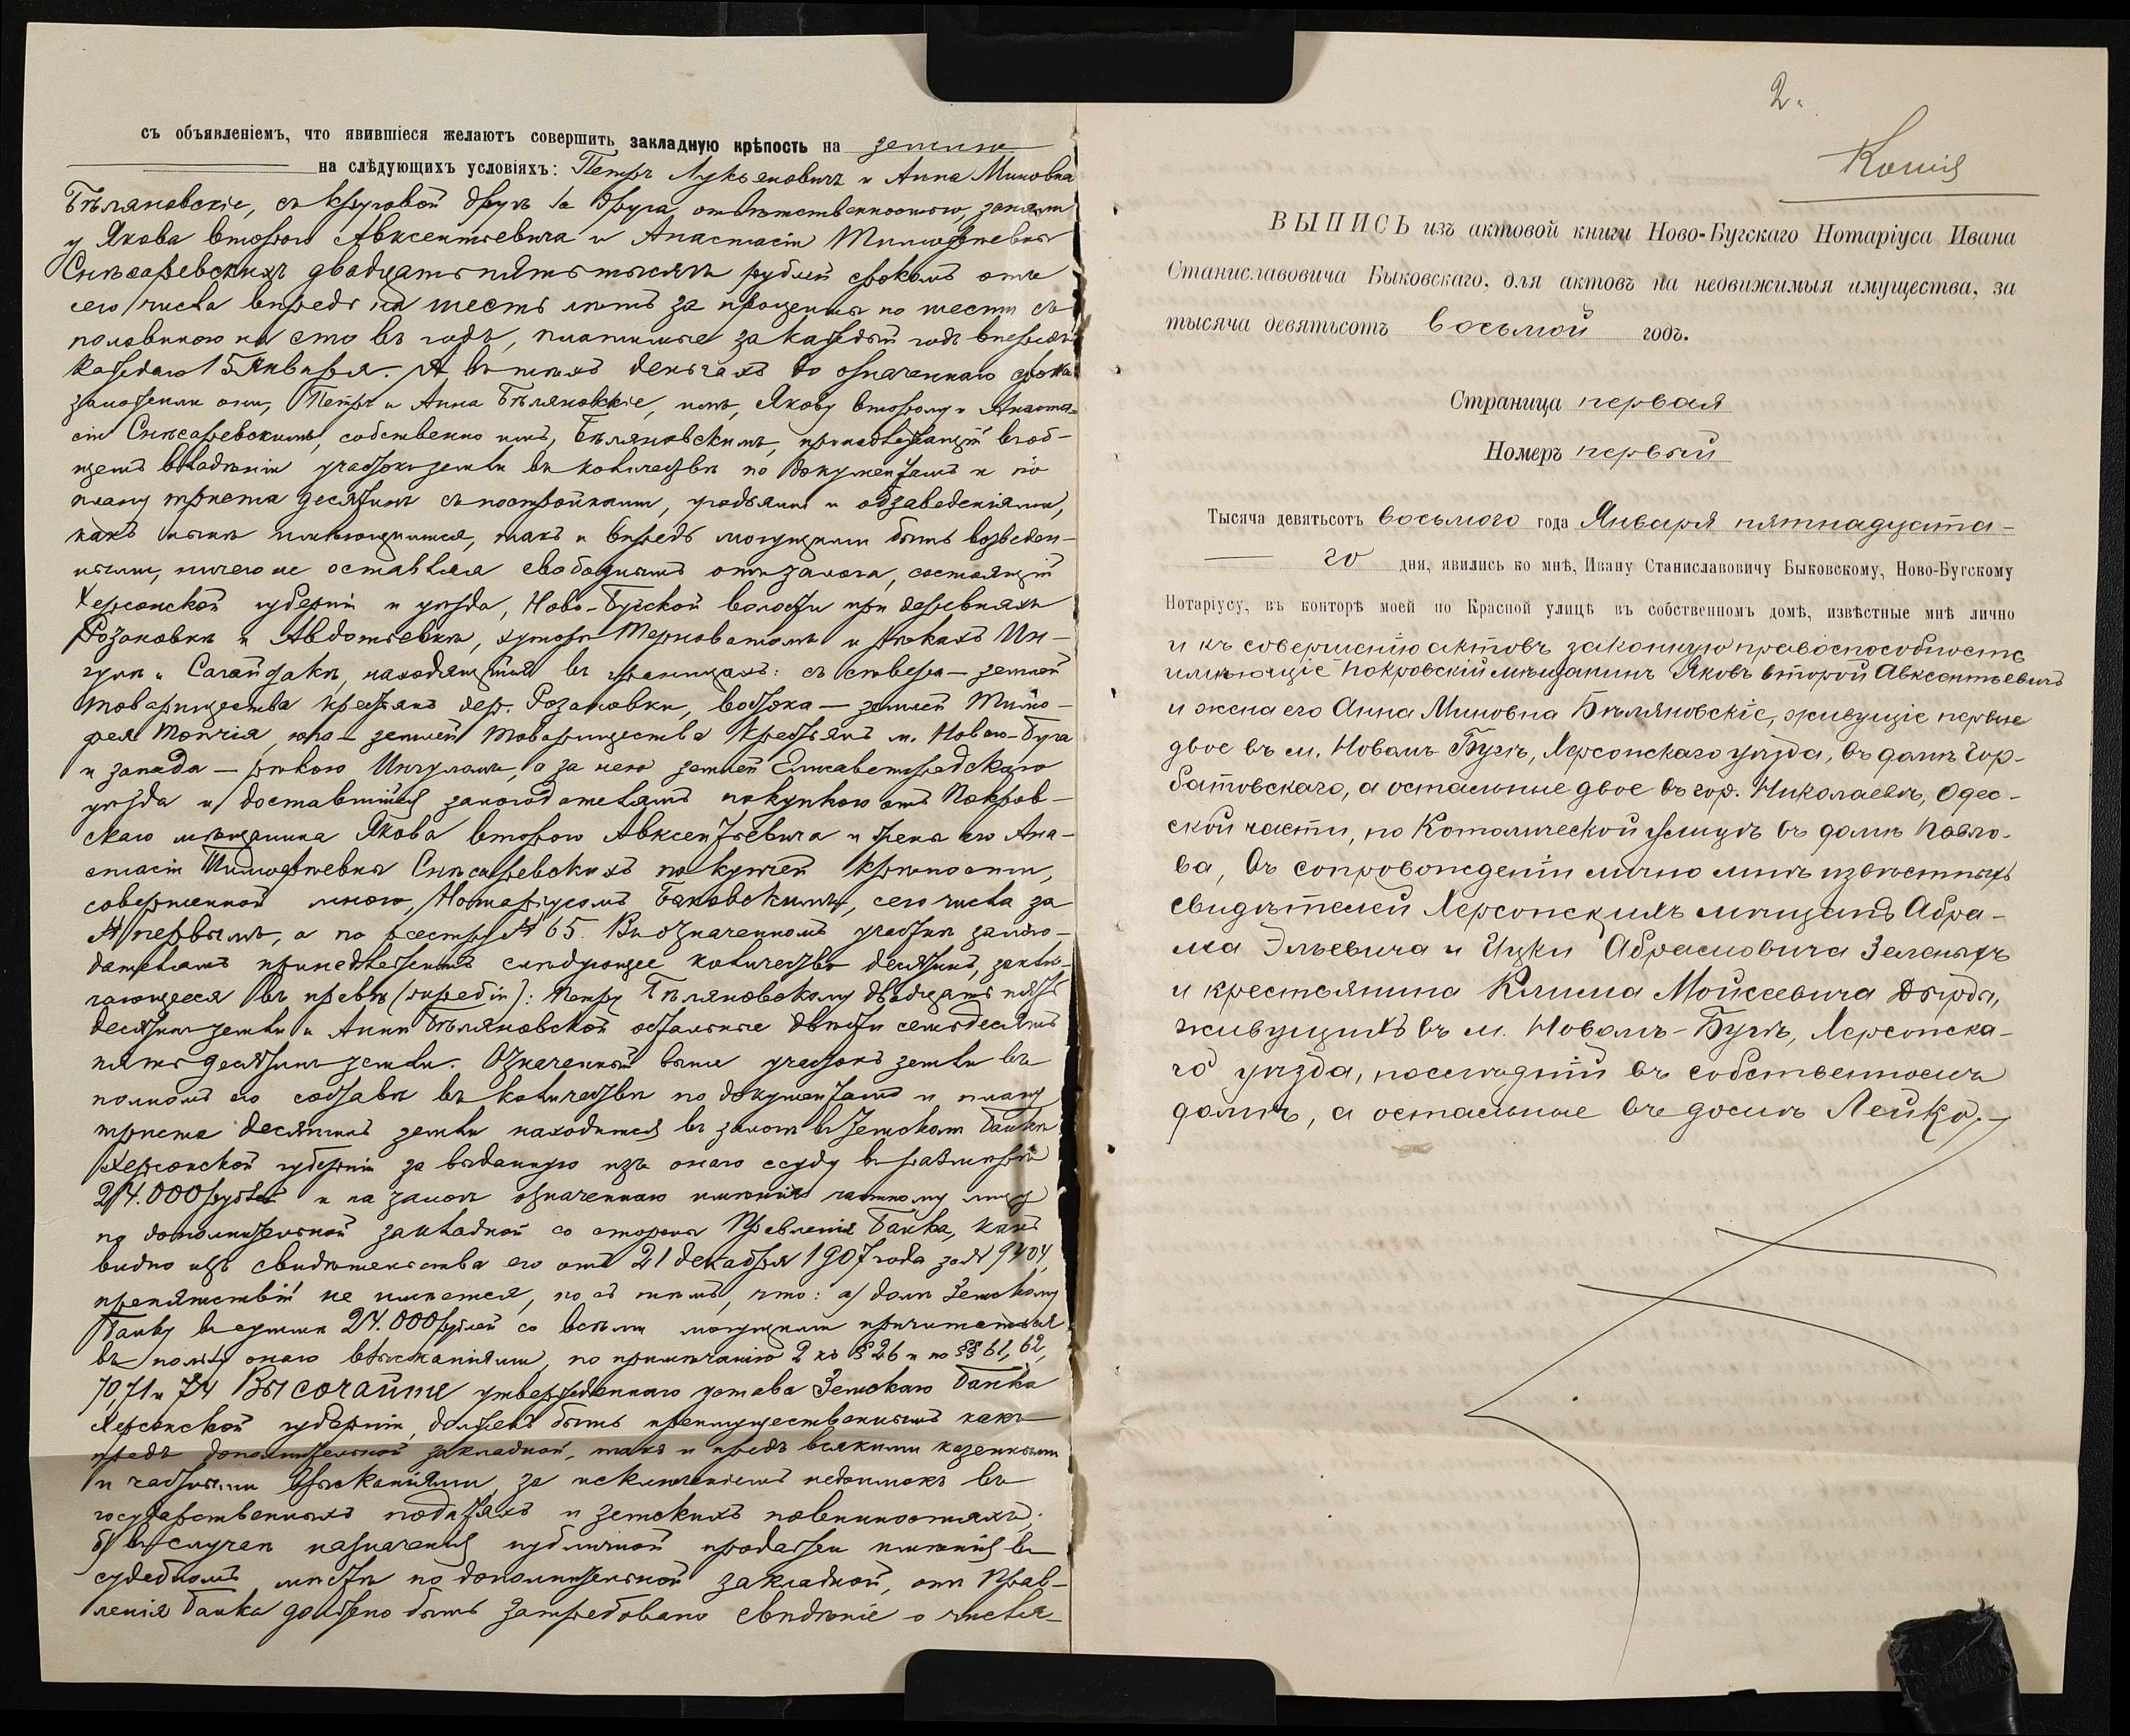 съ объявленіемъ, что явившіеся желаютъ совершить закладную крѣпость на землю
на слѣдующихъ условіяхъ: Петръ Лукьяновичъ и Анна Миновна
Бѣляновскіе, съ круговой другъ за друга отвѣтственностью, заняли
у Якова второго Авксентьевича и Анастасіи Тимофѣевны
Снѣсаревскихъ двадцать пять тысячъ рублей срокомъ отъ
сего числа впредь на шесть лѣтъ за проценты по шести съ
половиною на сто въ годъ, платимые за каждый годъ впередъ
каждаго 15 Января. А въ тѣхъ деньгахъ до означеннаго срока
заложили они, Петръ и Анна Бѣляновскіе, имъ, Якову второму и Анаста-
сіи Снѣсаревскимъ, собственно имъ, Бѣляновскимъ, принадлежащій въ об-
щемъ владѣніи участокъ земли въ количествѣ по документамъ и по
плану триста десятинъ съ постройками, угодьями и обзаведеніями,
какъ нынѣ имѣющимися, такъ и впредь могущими быть возведен-
ными, ничего не оставляя свободнымъ отъ залога, состоящій
Херсонской губерніи и уѣзда, Ново-Бугской волости при деревняхъ
Розановкѣ и Авдотьевкѣ, хуторѣ Терноватомъ и рѣкахъ Ин-
гулѣ и Сагайдакѣ, находящійся въ границахъ: съ сѣвера — землей
товарищества крестьянъ дер. Розановки, востока — землей Тимо-
фея Топчія, юга — землей товарищества крестьянъ м. Новаго-Буга
и запада — рѣкою Ингуломъ, а за нею землей Елисаветградскаго
уѣзда и доставшійся залогодателямъ покупкою отъ Покров-
скаго мѣщанина Якова второго Авксентьевича и жены его Ана-
стасіи Тимофѣевны Снѣсаревскихъ по купчей крѣпости,
совершенной мною, Нотаріусомъ Быковскимъ, сего числа за
№ первымъ, а по реестру № 65. Въ означенномъ участкѣ залого-
дателямъ принадлежитъ слѣдующее количество десятинъ, заклю-
чающееся въ правѣ (жребіи): Петру Бѣляновскому двадцать пять
десятинъ земли и Аннѣ Бѣляновской остальные двѣсти семьдесятъ
пять десятинъ земли. Означенный выше участокъ земли въ
полномъ его составѣ въ количествѣ по документамъ и плану
триста десятинъ земли находится въ залогѣ въ Земскомъ Банкѣ
Херсонской губерніи за выданную изъ онаго ссуду въ размѣрѣ
24.000 рублей и на залогъ означеннаго имѣнія частному лицу
по дополнительной закладной со стороны Правленія Банка, какъ
видно изъ свидѣтельства его отъ 21 декабря 1907 года за №
препятствій не имѣется, но съ тѣмъ, что: а) долгъ Земскому
Банку въ суммѣ 24.000 рублей со всѣми могущими причитаться
въ пользу онаго взысканіями, по примѣчанію 2 къ § 26 и по §§ 61, 62,
70, 71 и 74 Высочайше утвержденнаго устава Земскаго Банка
Херсонской губерніи, долженъ быть преимущественнымъ какъ
предъ дополнительной закладной, такъ и предъ всякими казенными
и частными взысканіями, за исключеніемъ недоимокъ въ
государственныхъ податяхъ и земскихъ повинностяхъ;
б) въ случаѣ назначенія публичной продажи имѣнія въ
судебномъ мѣстѣ по дополнительной закладной, отъ Прав-
ленія Банка должно быть затребовано свѣдѣніе о числя-
2.
Копія
ВЫПИСЬ изъ актовой книги Ново-Бугскаго Нотаріуса Ивана
Станиславовича Быковскаго, для актовъ на недвижимыя имущества, за
тысяча девятьсотъ восьмой годъ.
Страница первая
Номеръ первый
Тысяча девятьсотъ восьмого года Января пятнадцата-
го дня, явились ко мнѣ, Ивану Станиславовичу Быковскому, Ново-Бугскому
Нотаріусу, въ конторѣ моей по Красной улицѣ въ собственномъ домѣ, извѣстные мнѣ лично
и къ совершенію актовъ законную правоспособность
имѣющіе Покровскій мѣщанинъ Яковъ второй Авксентьевичъ
и жена его Анна Миновна Бѣляновскіе, живущіе первые
двое въ м. Новомъ Бугѣ, Херсонскаго уѣзда, въ домѣ Гор-
батовскаго, а остальные двое въ гор. Николаевѣ, Одес-
ской части, по Католической улицѣ въ домѣ Павло-
ва, въ сопровожденіи лично мнѣ извѣстныхъ
свидѣтелей Херсонскихъ мѣщанъ Абра-
ма Эльевича и Ицки Абрамовича Зеленыхъ
и крестьянина Клима Мойсеевича
живущихъ въ м. Новомъ-Бугѣ, Херсонска-
го уѣзда, послѣдній въ собственномъ
домѣ, а остальные въ домѣ Лейко.—